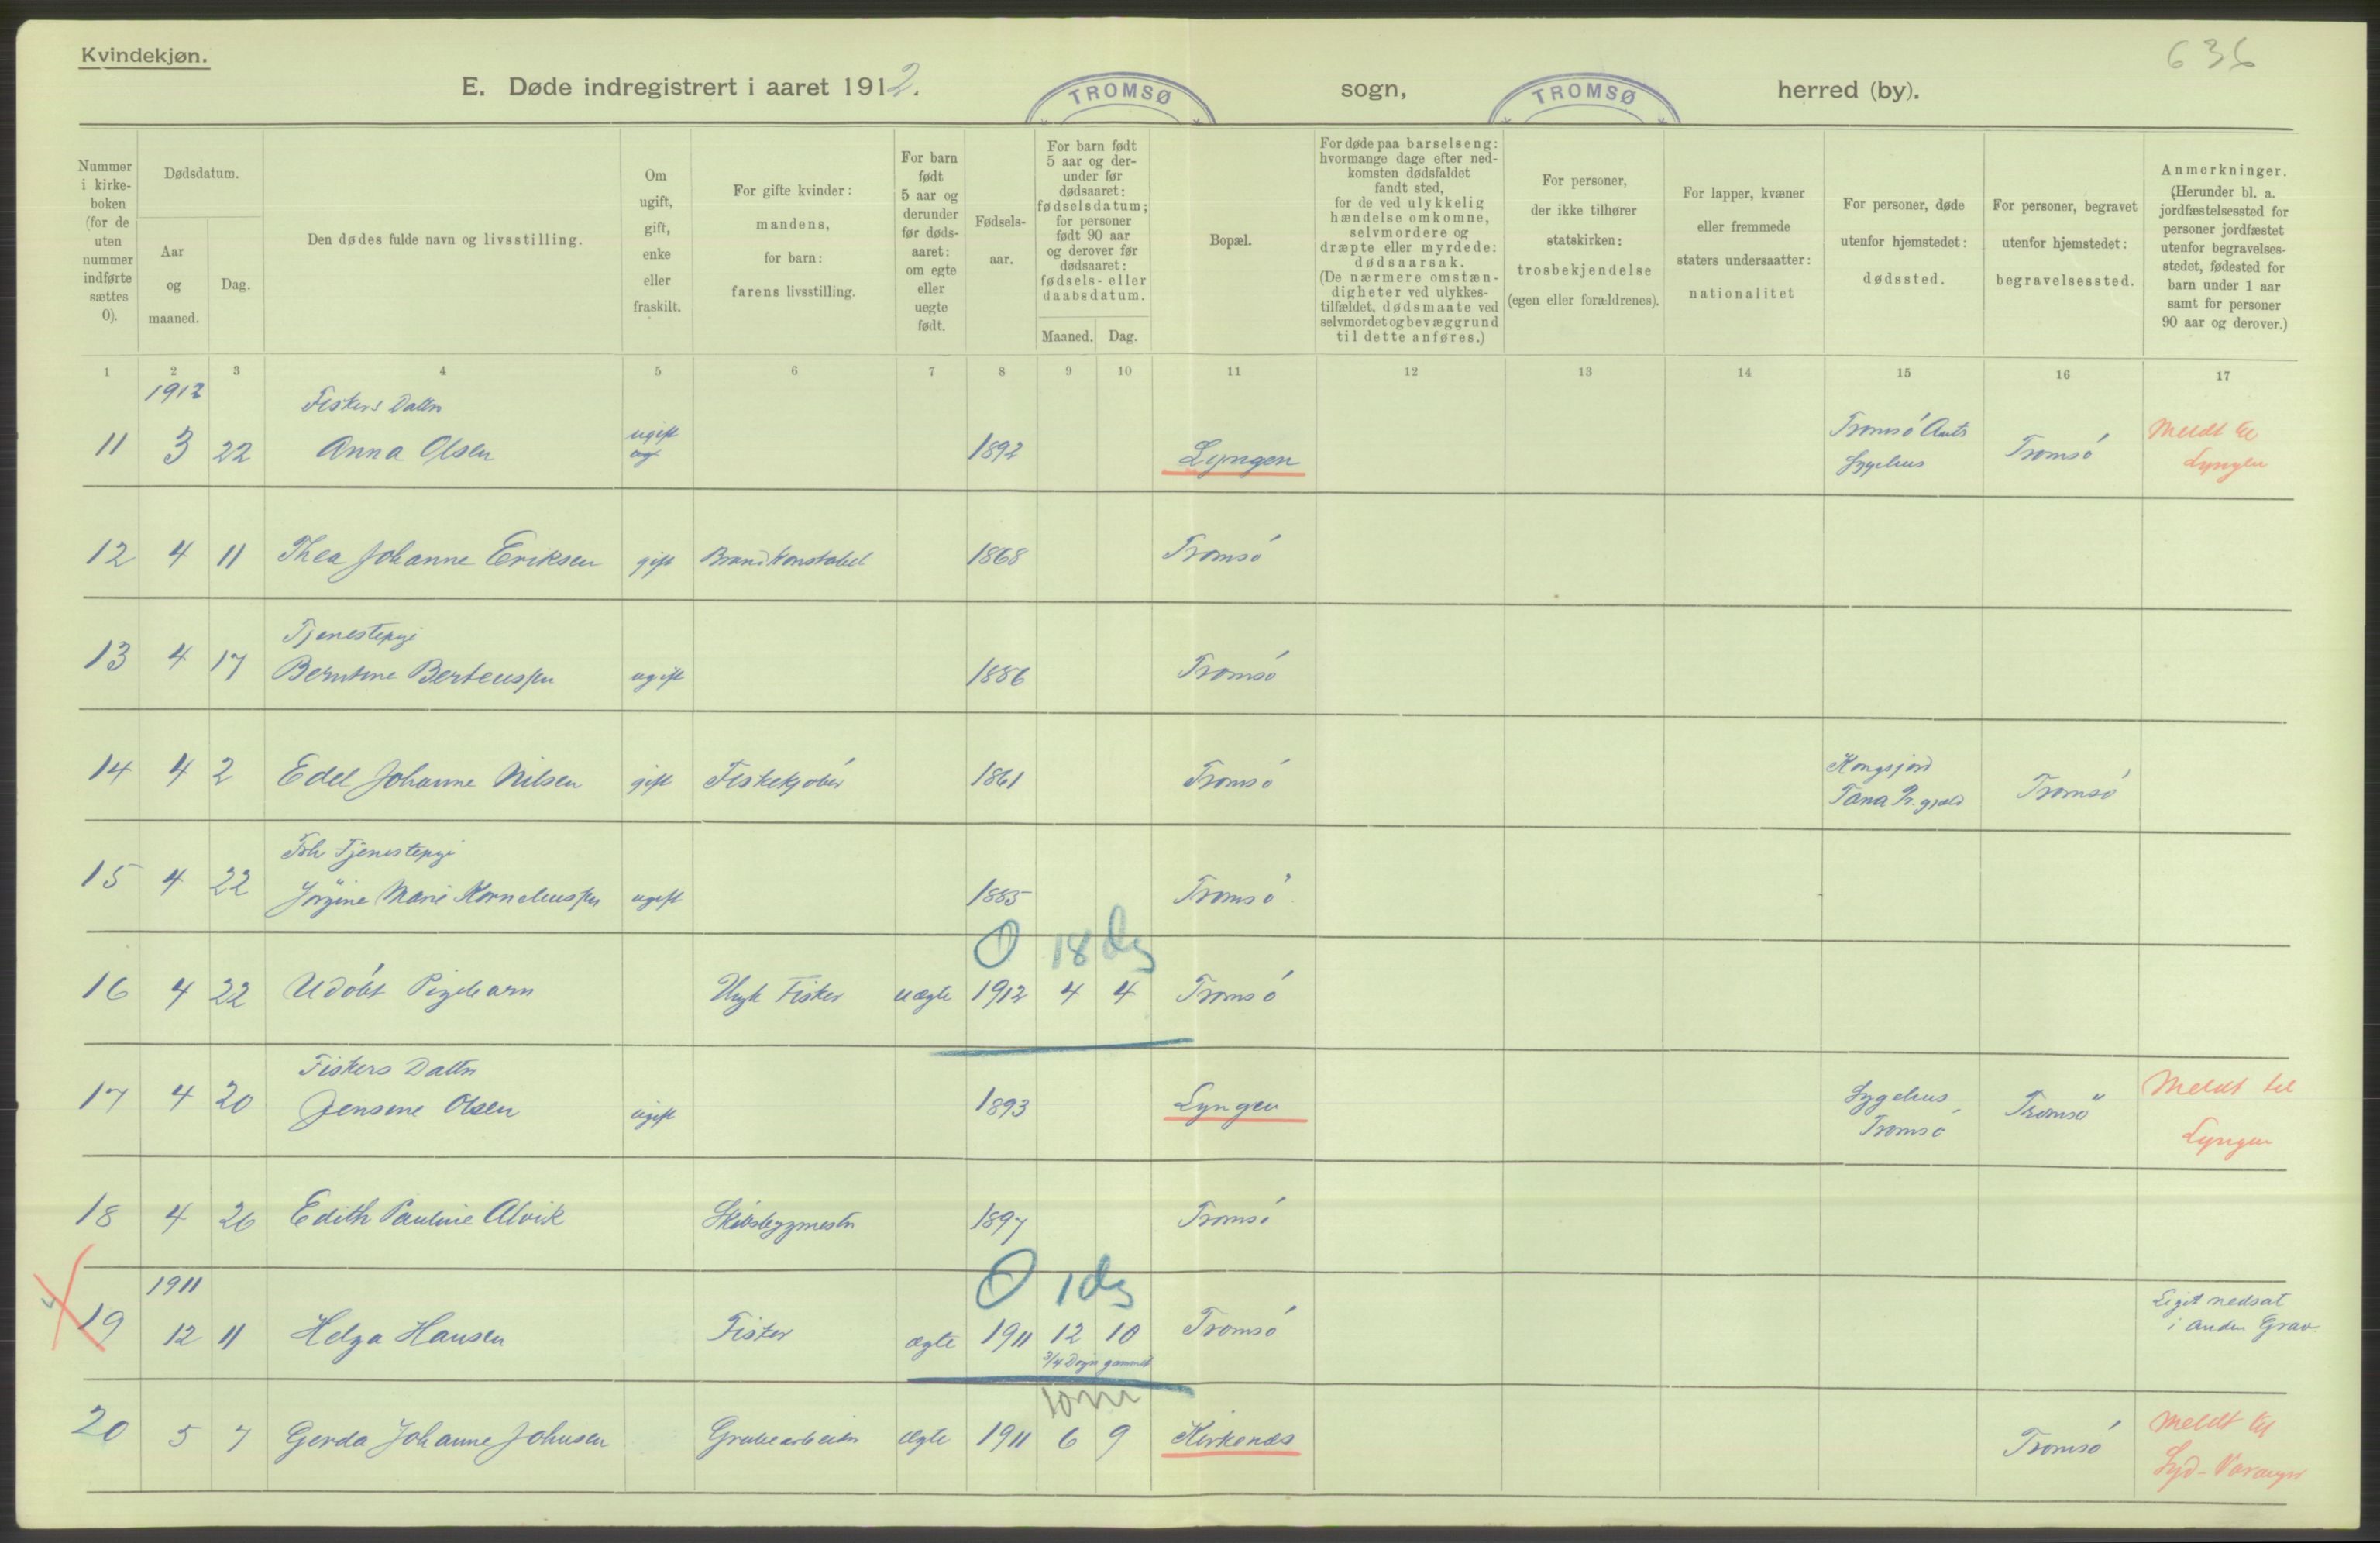 Kvindekjøn.
636
E. Døde indregistrert i aaret 1912. TROMSØ sogn, TROMSØ herred (by).
Nummer i kirke-boken (for de uten nummer indførte sættes 0).
Dødsdatum.
Aar og maaned.
Dag.
Den dødes fulde navn og livsstilling.
Om ugift, gift, enke eller fraskilt.
For gifte kvinder: mandens, for barn: farens livsstilling.
For barn født 5 aar og derunder før døds-aaret: om egte eller uegte født.
Fødsels-aar.
For barn født 5 aar og der-under før dødsaaret: fødselsdatum; for personer født 90 aar og derover før dødsaaret: fødsels- eller daabsdatum.
Maaned. Dag.
Bopæl.
For døde paa barselseng: hvormange dage efter ned-komsten dødsfaldet fandt sted, for de ved ulykkelig hændelse omkomne, selvmordere og dræpte eller myrdede: dødsaarsak. (De nærmere omstæn-digheter ved ulykkes-tilfældet, dødsmaate ved selvmordet og bevæggrund til dette anføres.)
For personer, der ikke tilhører statskirken: trosbekjendelse (egen eller forældrenes).
For lapper, kvæner eller fremmede staters undersaatter: nationalitet
For personer, døde utenfor hjemstedet: dødssted.
For personer, begravet utenfor hjemstedet: begravelsessted.
Anmerkninger. (Herunder bl. a. jordfæstelsessted for personer jordfæstet utenfor begravelses-stedet, fødested for barn under 1 aar samt for personer 90 aar og derover.)
1 2 3 4 5 6 7 8 9 10 11 12 13 14 15 16 17
1912 Fiskers Datter
11 3 22 Anna Olsen ugift 1892 Lyngen Tromsó Amts Sygehus Tromsó Meldt til Lyngen
12 4 11 Thea Johanne Eriksen gift Brandkonstabel 1868 Tromsó
Tjenestepige
13 4 17 Berntine Berteussen ugift 1886 Tromsó
14 4 2 Edel Johanne Nilsen gift Fiskekjøber 1861 Tromsó Kongsfjord Tana Pr.gjæld Tromsó
Fhv Tjenestepige
15 4 22 Jörgine Marie Korneliussen ugift 1885 Tromsö
0 18 dg
16 4 22 Udóbt Pigebarn Ungk Fisker uægte 1912 4 4 Tromsó
Fiskers Datter
17 4 20 Jensine Olsen ugift 1893 Lyngen Sygehus Tromsó Tromsö Meldt til Lyngen
18 4 26 Edith Pauline Alvik Skibsbygmester 1897 Tromsó
1911 0 1 dg
19 12 11 Helga Hansen Fisker ægte 1911 12 10 Tromsó Liget nedsat i anden Grav.
3/4 Døgn gammel
10 m
20 5 7 Gerda Johanne Johnsen Grubearbeider ægte 1911 6 9 Kirkenes Tromsó Meldt til Syd-Varanger